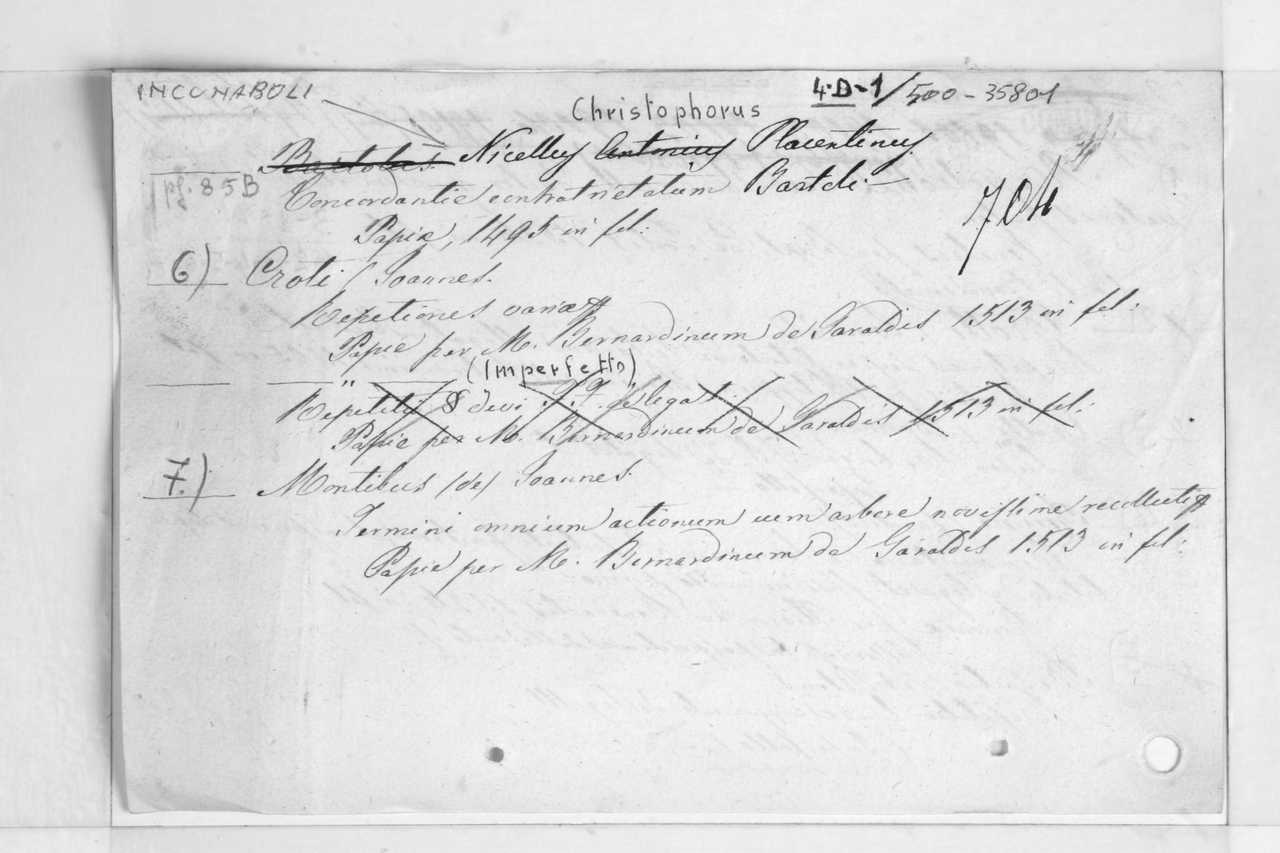 INCUNABOLI
4-D-1/500-35801
Christophorus
Bartolus Nicellus Antonius Placentinus
pg. 85B
Concordantie contrarietatum Bartoli
704
Papiæ, 1495 in fol:
6) Croti / Joannes.
Repetiones variæ
Papie per M. Bernardinum de Garaldis 1513 in fol:
" (Imperfetto)
Repetitio § divi F.F. de legat:
Papie per M. Bernardinum de Garaldis 1513 in fol:
7.) Montibus /de/ Joannes.
Termini omnium actionum cum arbore novissime recollecti
Papie per M. Bernardinum de Garaldis 1513 in fol: